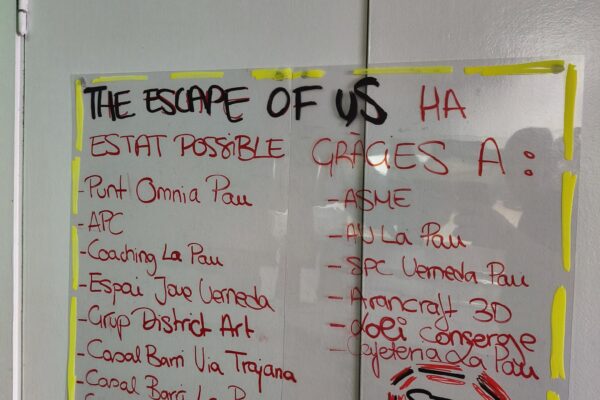 THE ESCAPE OF US HA
ESTAT POSSIBLE GRÀCIES A:
- Punt Omnia Pau
- APC
- Coaching La Pau
- Espai Jove Verneda
- Grup District Art
- Casal Barri Via Trajana
- Casal Barri La P
- ASME
- AV La Pau
- SPC Verneda Pau
- Arancraft 3D
- Loli Conserge
- Cafeteria La Pau